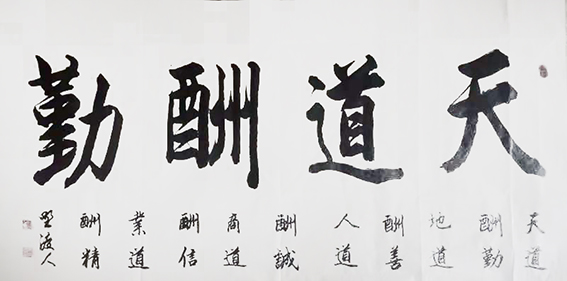 天道酬勤
天道
酬勤
地道
酬善
人道
酬誠
商道
酬信
業道
酬精
渡人